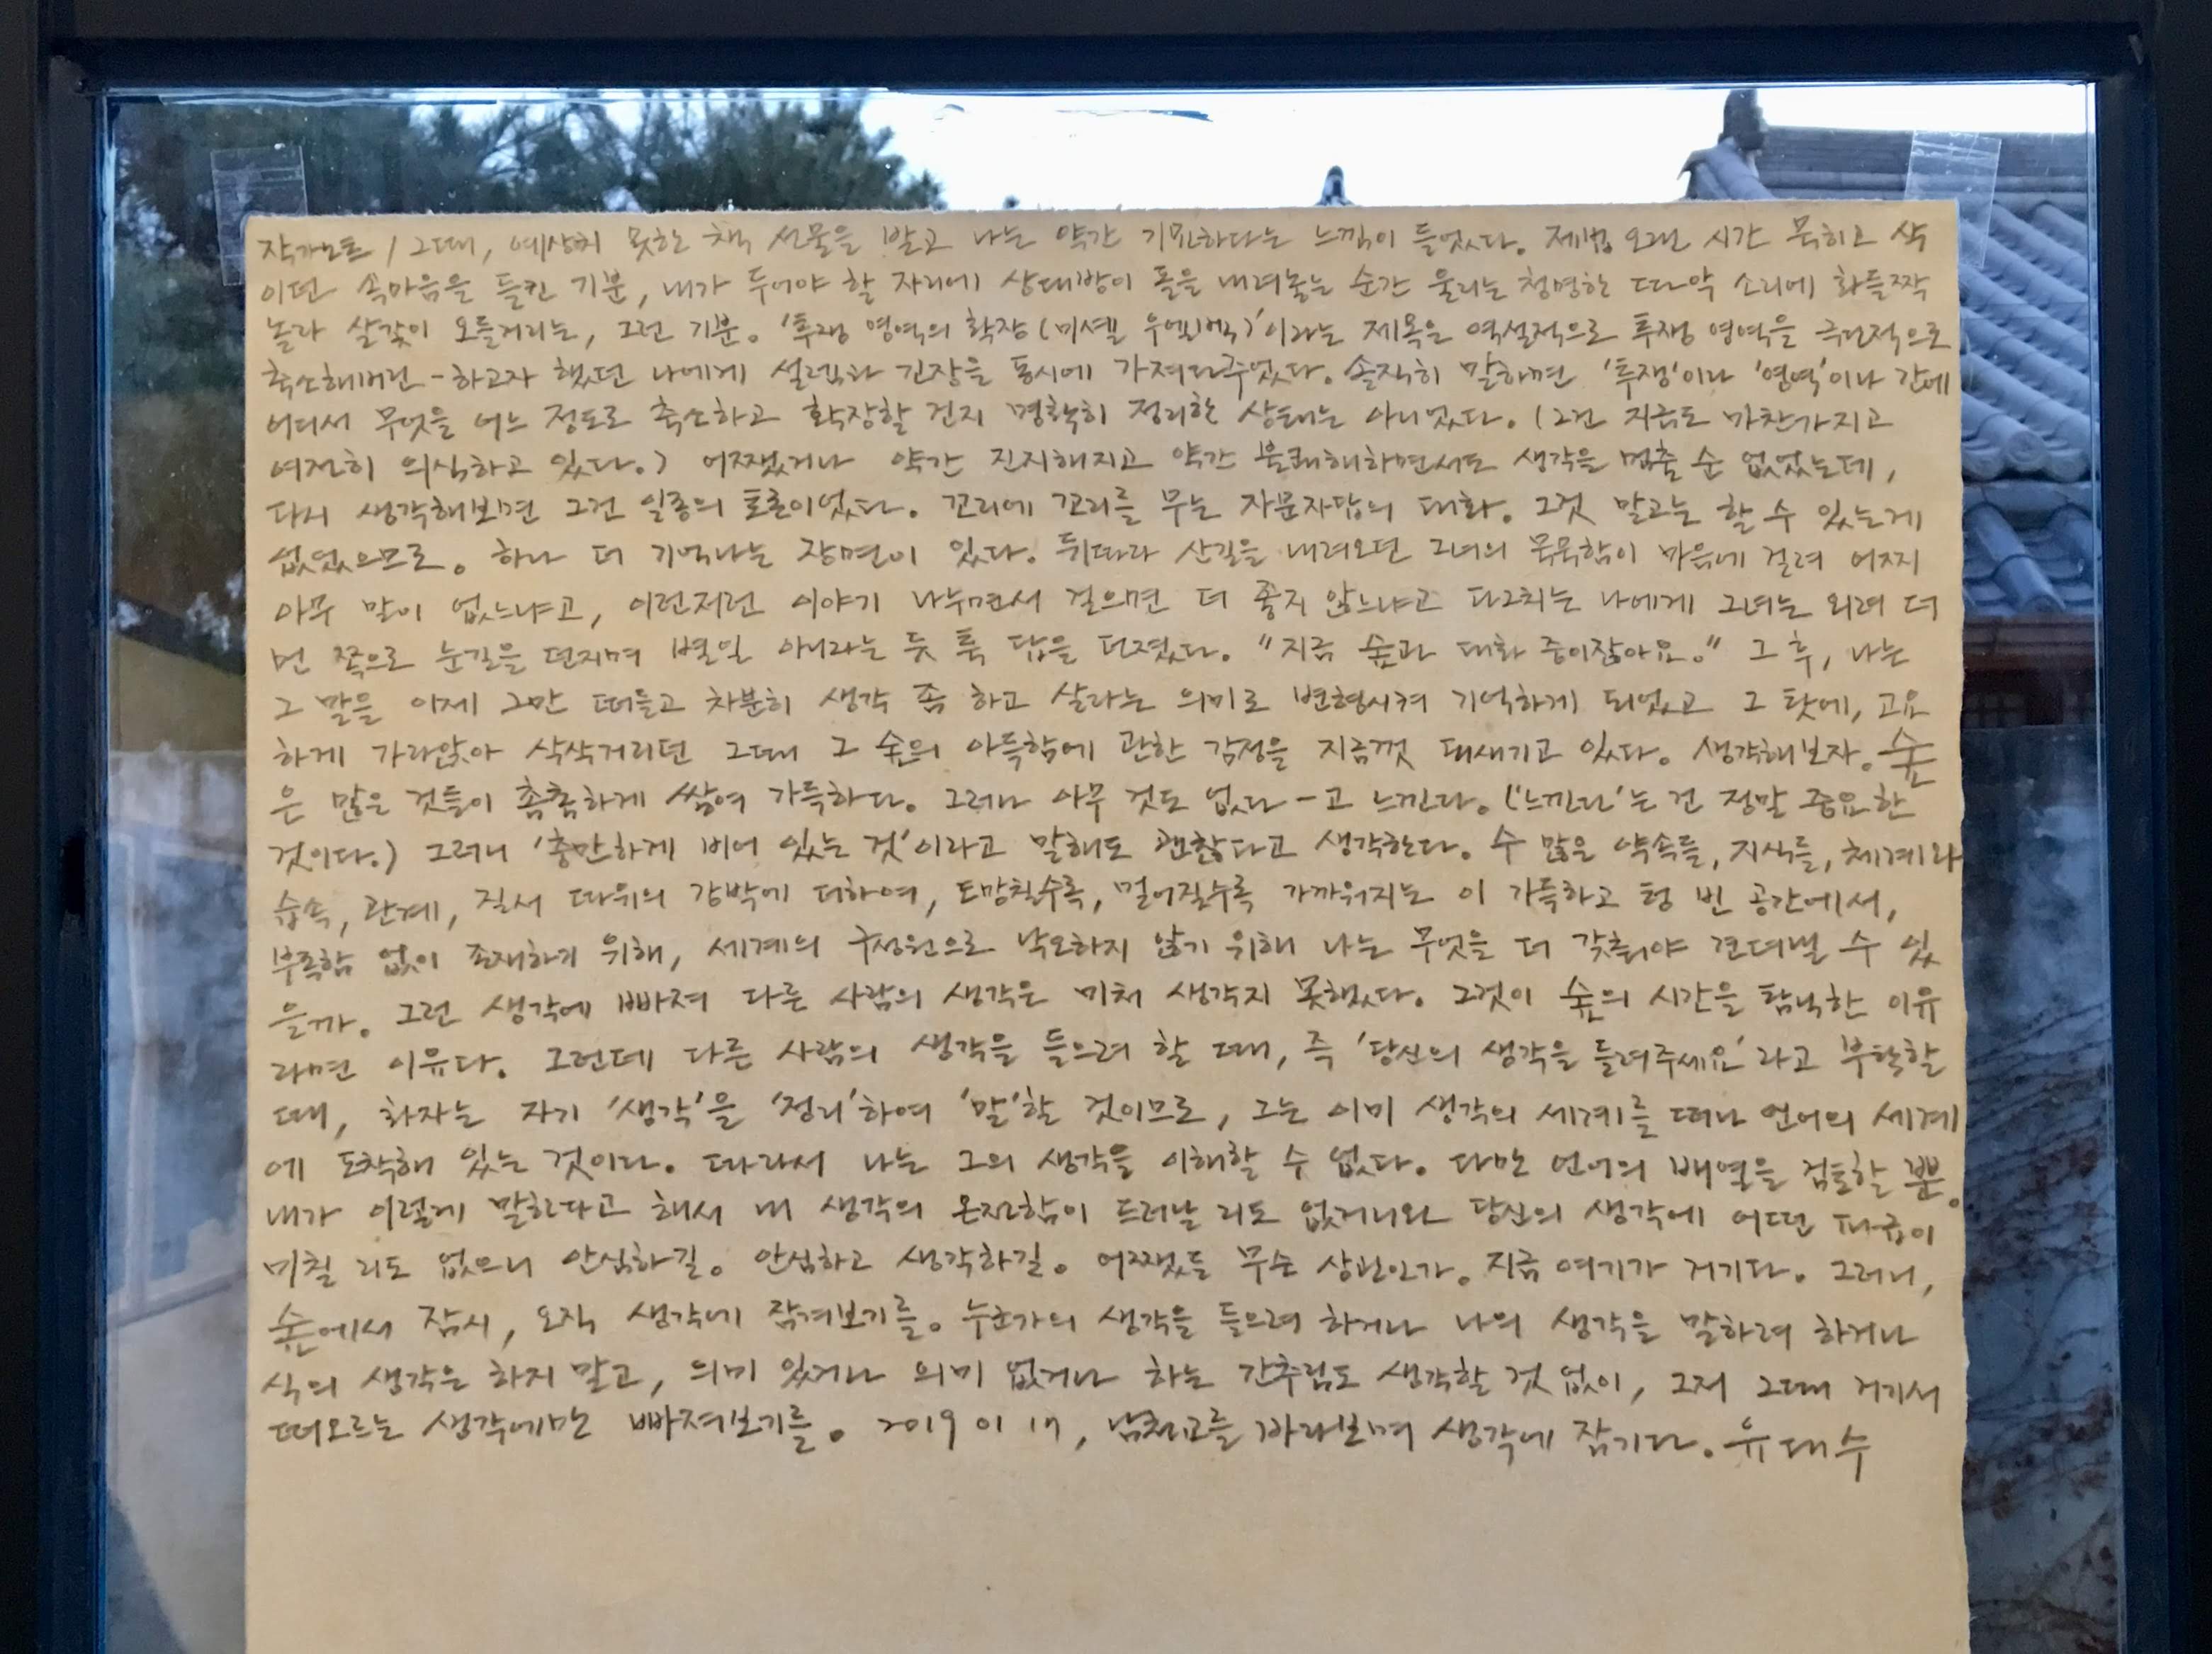 작가노트 / 그때, 예상치 못한 책 선물을 받고 나는 약간 기묘하다는 느낌이 들었다. 제법 오랜 시간 묵히고 삭
이던 속마음을 들킨 기분, 내가 두어야 할 자리에 상대방이 돌을 내려놓는 순간 울리는 청명한 따악 소리에 화들짝
놀라 살갗이 오들거리는, 그런 기분. '투쟁 영역의 확장(미셸 우엘벡)'이라는 제목은 역설적으로 투쟁 영역을 극단적으로
축소해버린-하고자 했던 나에게 설렘과 긴장을 동시에 가져다주었다. 솔직히 말하면 '투쟁'이나 '영역'이나 간에
어디서 무엇을 어느 정도로 축소하고 확장할 건지 명확히 정리한 상태는 아니었다. (그건 지금도 마찬가지고
여전히 의식하고 있다.) 어쨌거나 약간 진지해지고 약간 불쾌해하면서도 생각을 멈출 순 없었는데,
다시 생각해보면 그건 일종의 토론이었다. 꼬리에 꼬리를 무는 자문자답의 대화. 그것 말고는 할 수 있는게
없었으므로. 하나 더 기억나는 장면이 있다. 뒤따라 산길을 내려오던 그녀의 묵묵함이 마음에 걸려 어찌
아무 말이 없느냐고, 이런저런 이야기 나누면서 걸으면 더 좋지 않느냐고 다그치는 나에게 그녀는 외려 더
먼 쪽으로 눈길을 던지며 별일 아니라는 듯 툭 답을 던졌다. "지금 숲과 대화 중이잖아요." 그 후, 나는
그 말을 이제 그만 떠들고 차분히 생각 좀 하고 살라는 의미로 변형시켜 기억하게 되었고 그 탓에, 고요
하게 가라앉아 삭삭거리던 그때 그 숲의 아득함에 관한 감정을 지금껏 되새기고 있다. 생각해보자. 숲
은 많은 것들이 촘촘하게 쌓여 가득하다. 그러나 아무 것도 없다-고 느낀다. ('느낀다'는 건 정말 중요한
것이다.) 그러니 '충만하게 비어 있는 것'이라고 말해도 괜찮다고 생각한다. 수 많은 약속들, 지식들, 체계와
습속, 관계, 질서 따위의 강박에 더하여, 도망칠수록, 멀어질수록 가까워지는 이 가득하고 텅 빈 공간에서,
부족함 없이 존재하기 위해, 세계의 구성원으로 낙오하지 않기 위해 나는 무엇을 더 갖춰야 견뎌낼 수 있
을까. 그런 생각에 빠져 다른 사람의 생각은 미처 생각지 못했다. 그것이 숲의 시간을 탐닉한 이유
라면 이유다. 그런데 다른 사람의 생각을 들으려 할 때, 즉 '당신의 생각을 들려주세요'라고 부탁할
때, 화자는 자기 '생각'을 '정리'하여 '말'할 것이므로, 그는 이미 생각의 세계를 떠나 언어의 세계
에 도착해 있는 것이다. 따라서 나는 그의 생각을 이해할 수 없다. 다만 언어의 배열을 검토할 뿐.
내가 이렇게 말한다고 해서 내 생각의 온전함이 드러날 리도 없거니와 당신의 생각에 어떤 파급이
미칠 리도 없으니 안심하길. 안심하고 생각하길. 어쨌든 무슨 상관인가. 지금 여기가 거기다. 그러니,
숲에서 잠시, 오직 생각에 잠겨보기를. 누군가의 생각을 들으려 하거나 나의 생각을 말하려 하거나
식의 생각은 하지 말고, 의미 있거나 의미 없거나 하는 간추림도 생각할 것 없이, 그저 그때 거기서
떠오르는 생각에만 빠져보기를. 2019 01 17, 남천교를 바라보며 생각에 잠기다. 유대수